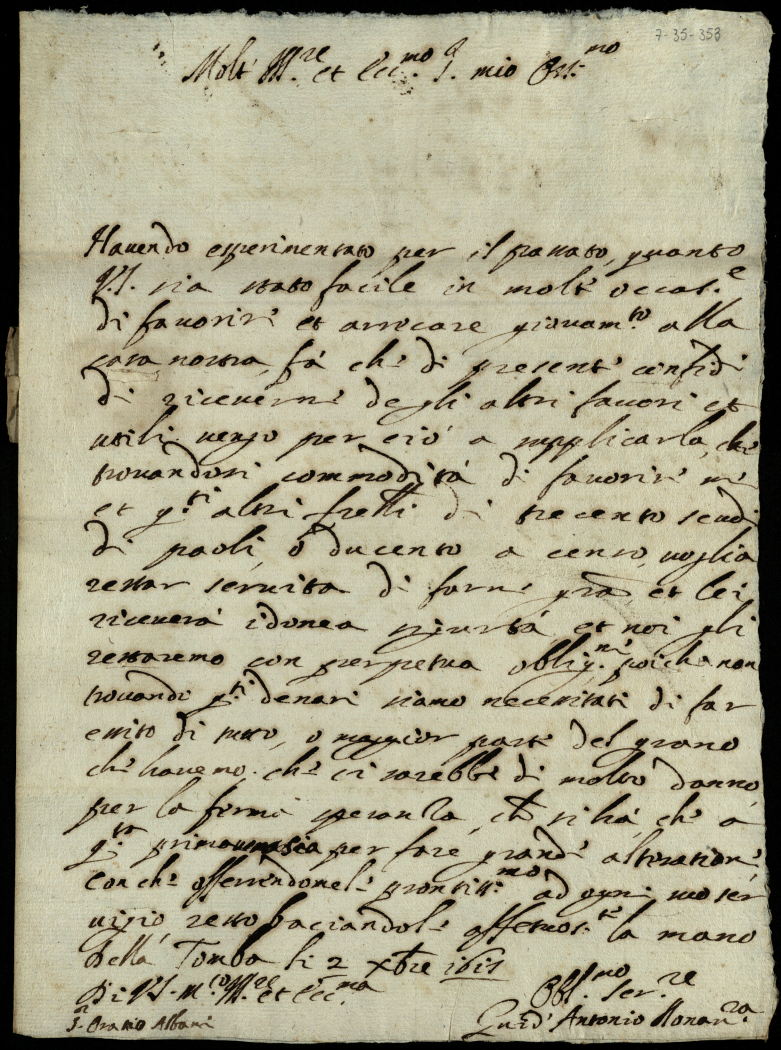 7-35-353
Molt' Ill.re et Ecc.mo S. mio Oss.mo
Havendo esperimentato per il passato, quanto
V.S. sia stato facile in molte occas.e
di favorire et arrecare giovam.to alla
casa nostra, fà che di presente confidi
di riceverne degli altri favori et
utili vengo per ciò a supplicarla, che
trovandosi commodità di favorire me
et q.sti altri fratelli di trecento scudi
di paoli, ò ducento a censo, voglia
restar servita di farne gra et lei
riceverà idonea sicurtà et noi gli
restaremo con perpetua oblig.ne poiche non
trovandosi q.sti denari siamo necessitati di far
esito di tutto, o maggior parte del grano
che havemo che ci sarebbe di molto danno,
per la ferma speranza, che si hà, che à
q.sta primavera sia per fare grande alteratione
con che offerendomele prontiss.mo ad ogni suo ser
vigio, resto baciandole affettuos.te la mano
Della Tomba li 2 xbre 1651
Di V.S. m.to Ill.re et Ecc.ma
Obl.mo ser.re
S.r Oratio Albani
Guid' Antonio